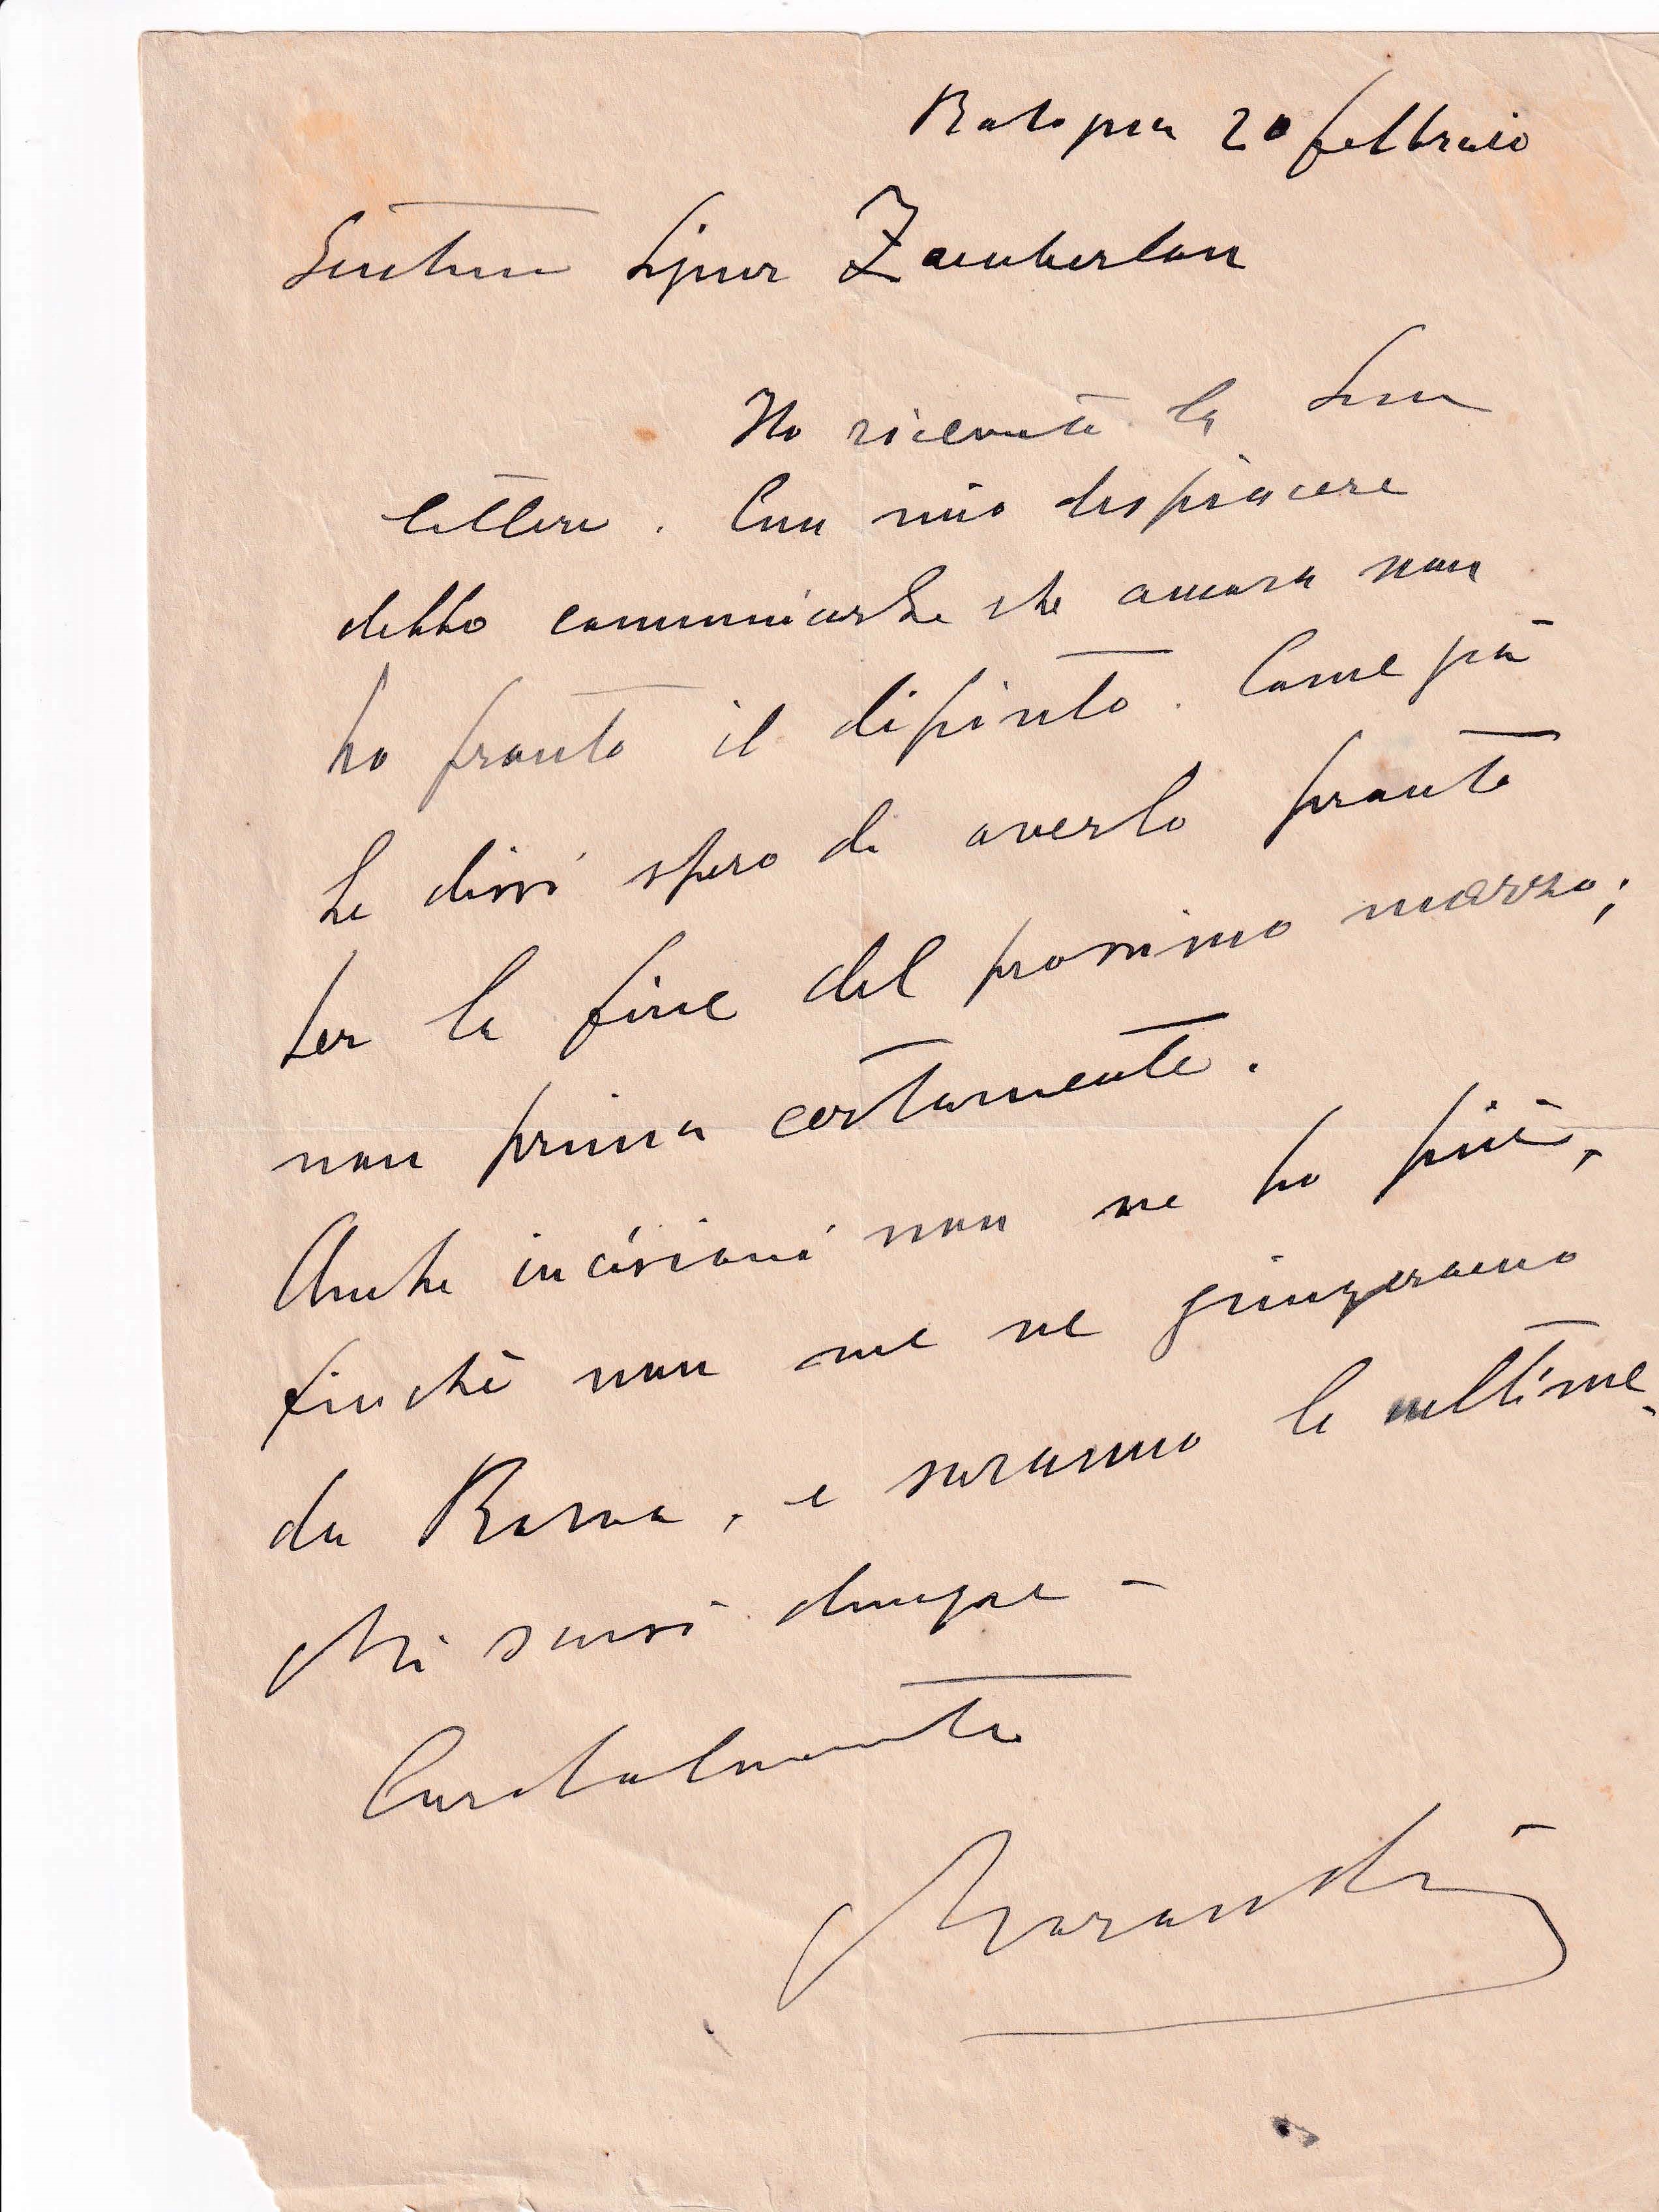 Bologna 20 febbraio
Gentmo Signor Zamberlan
Ho ricevuto la Sua
lettera. Con mio dispiacere
debbo comunicarLe che ancora non
ho pronto il dipinto. Come già
Le dissi spero di averlo pronto
per la fine del prossimo marzo;
non prima certamente.
Anche incisioni non ne ho più,
finchè non me ne giungeranno
da Roma, e saranno le ultime.
Mi scusi dunque -
Cordialmente
Morandi